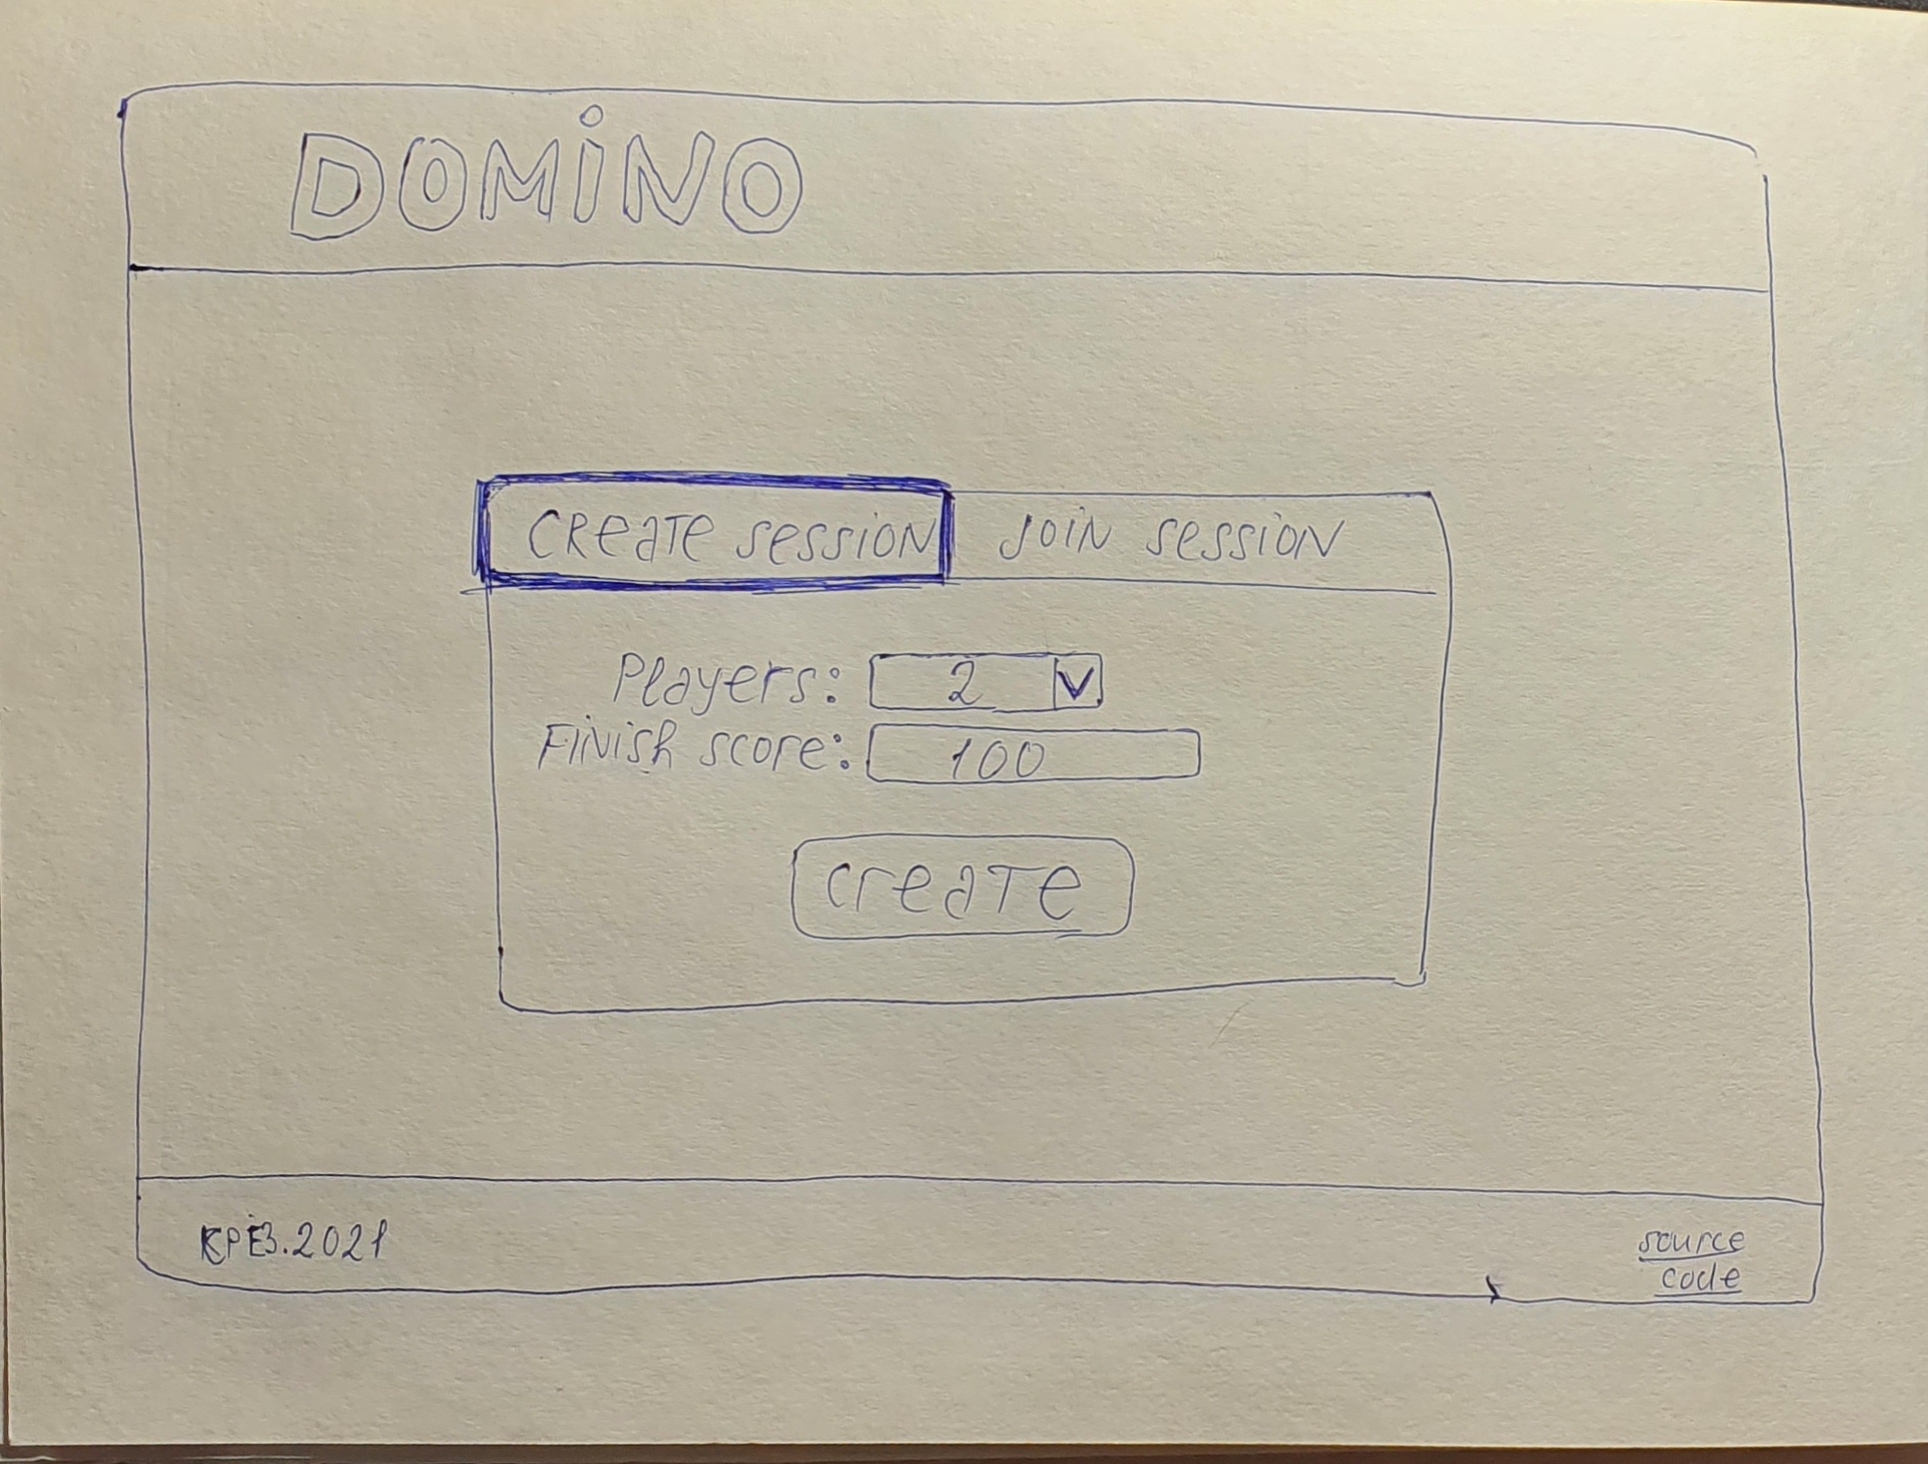 DOMiNO
CREATE SESSION JOIN SESSION
Players: 2 V
Finish score: 100
CREATE
2021 source
code